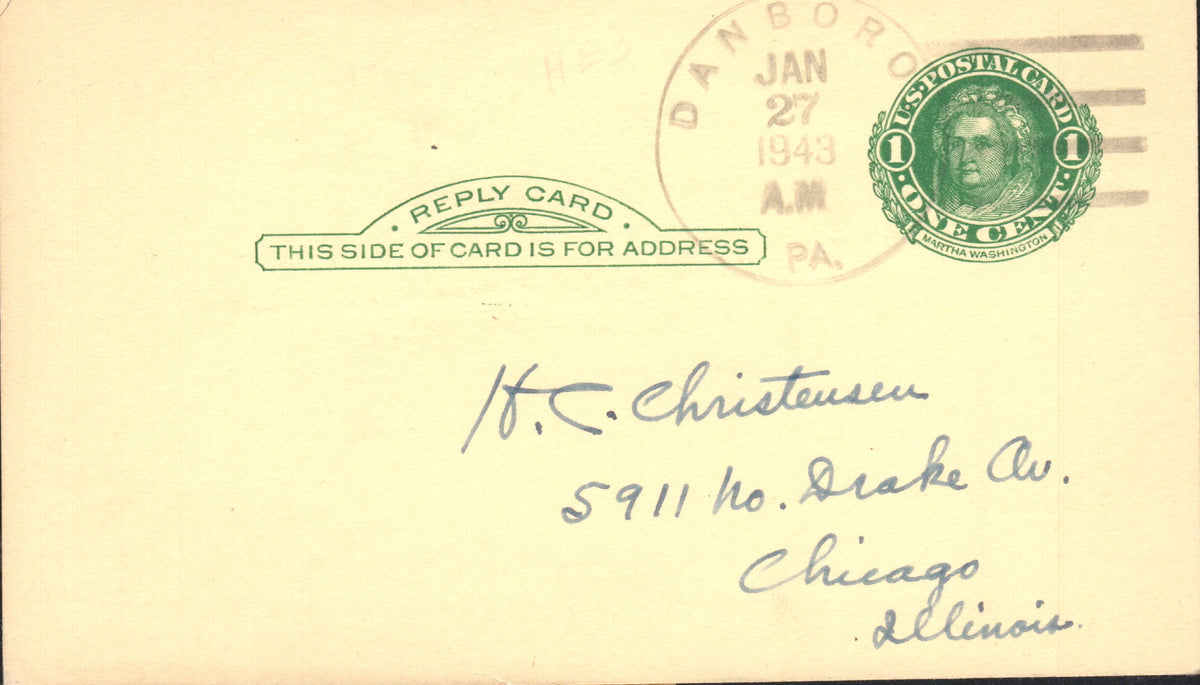 DANBORO
JAN
27
1943
A.M
PA.
U.S. POSTAL CARD
1 1
· ONE CENT ·
MARTHA WASHINGTON
· REPLY CARD ·
THIS SIDE OF CARD IS FOR ADDRESS
H. C. Christensen
5911 No. Drake Av.
Chicago
Illinois.